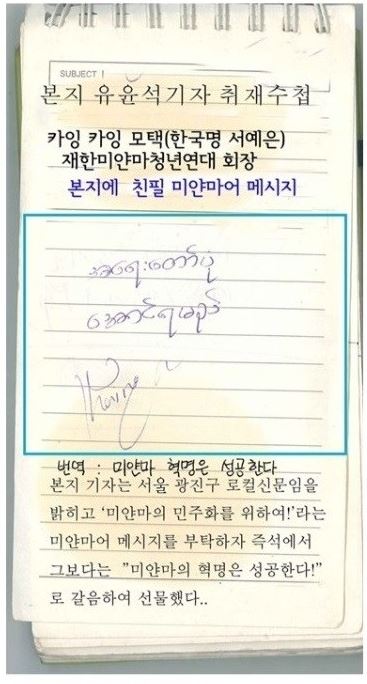 SUBJECT !
본지 유윤석기자 취재수첩
카잉 카잉 모택(한국명 서예은)
재한미얀마청년연대 회장
본지에 친필 미얀마어 메시지
အရေးတော်ပုံ
အောင်ရမည်
번역 : 미얀마 혁명은 성공한다
본지 기자는 서울 광진구 로컬신문임을
밝히고 '미얀마의 민주화를 위하여!'라는
미얀마어 메시지를 부탁하자 즉석에서
그보다는 "미얀마의 혁명은 성공한다!"
로 갈음하여 선물했다..